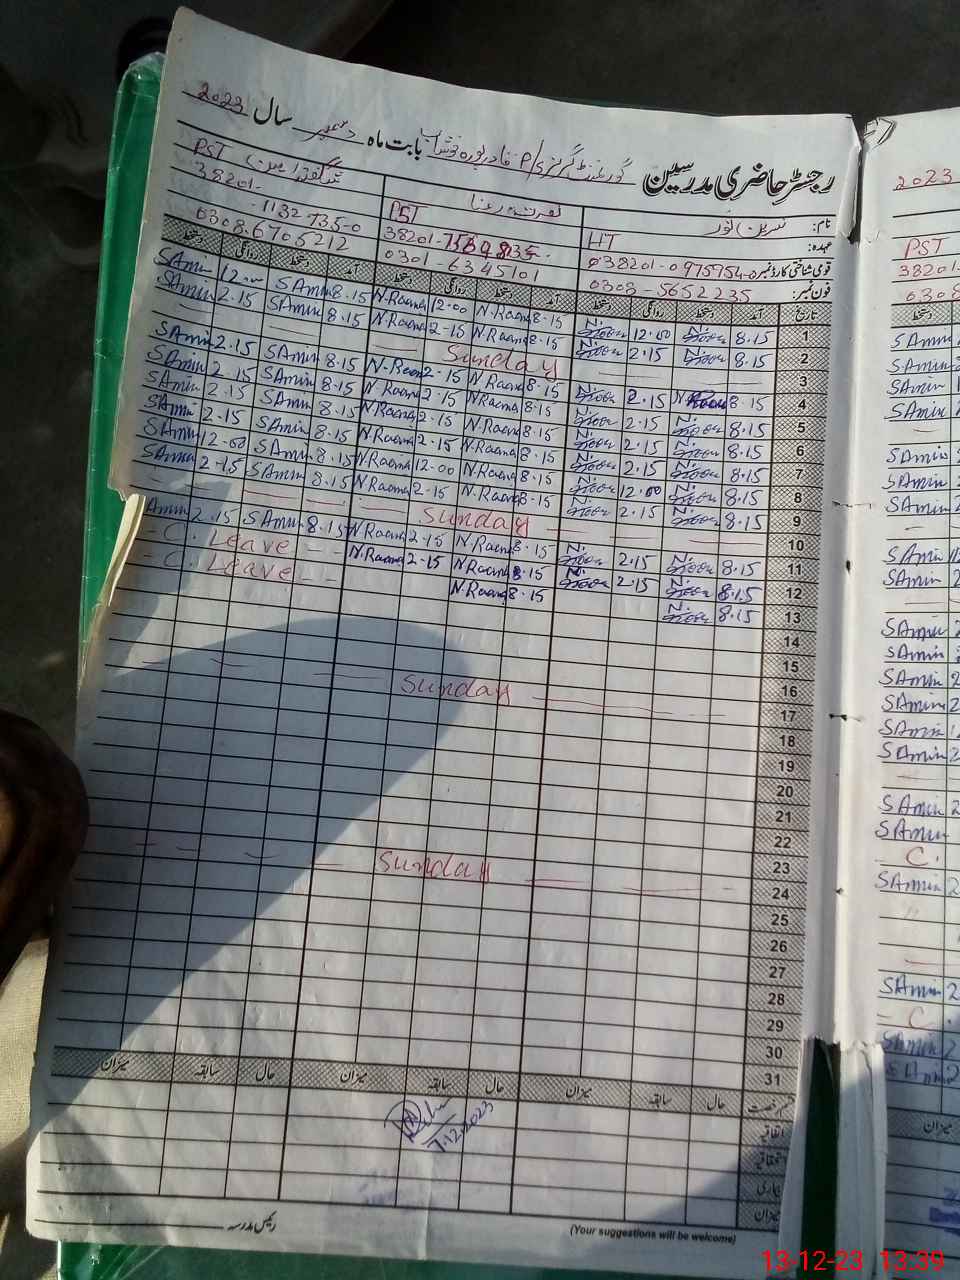 رجسٹر حاضری مدرسین گورنمنٹ گرلز P/ قادر پورہ خوشاب بابت ماہ دسمبر سال 2023
نام: نسرین نور
نصرت رعنا
عہدہ: HT
PST
PST
قومی شناختی کارڈ نمبر 38201-0975754-0
38201-
38201-
-1132735-0
فون نمبر: 0303-5652235
0301-6345101
0308.6705212
تاریخ آمد دستخط روانگی دستخط آمد دستخط روانگی دستخط آمد دستخط روانگی دستخط
1 8.15 N.Noor 12.00 N.Noor 8.15 N.Raana 12.00 N.Raana 8.15 SAmin 12.00 SAmin
2 8.15 N.Noor 2.15 N.Noor 8.15 N.Raana 2.15 N.Raana 8.15 SAmin 2.15 SAmin
3 Sunday
4 8.15 2.15 N.Noor 8.15 N.Raana 2.15 N.Raana 8.15 SAmin 2.15 SAmin
5 8.15 N.Noor 2.15 N.Noor 8.15 N.Raana 2.15 N.Raana 8.15 SAmin 2.15 SAmin
6 8.15 N.Noor 2.15 N.Noor 8.15 N.Raana 2.15 N.Raana 8.15 SAmin 2.15 SAmin
7 8.15 N.Noor 2.15 N.Noor 8.15 N.Raana 2.15 N.Raana 8.15 SAmin 2.15 SAmin
8 8.15 N.Noor 12.00 N.Noor 8.15 N.Raana 12.00 N.Raana 8.15 SAmin 12.00 SAmin
9 8.15 N.Noor 2.15 N.Noor 8.15 N.Raana 2.15 N.Raana 8.15 SAmin 2.15 SAmin
10 Sunday
11 8.15 N.Noor 2.15 N.Noor 8.15 N.Raana 2.15 N.Raana 8.15 SAmin 2.15 Amin
12 8.15 N.Noor 2.15 N.Noor 8.15 N.Raana 2.15 N.Raana C. Leave
13 8.15 N.Noor 8.15 N.Raana C. Leave
14
15
16
17 Sunday
18
19
20
21
22
23
24 Sunday
25
26
27
28
29
30
31
قسم رخصت حال سابقہ میزان حال سابقہ میزان حال سابقہ میزان
اتفاقیہ
استحقاقیہ
بیماری
میزان
7.12.2023
(Your suggestions will be welcome)
رئیس مدرسہ
2023
PST
38201-
SAmin
SAmin
SAmin
SAmin
SAmin
SAmin 2
SAmin 2
SAmin
SAmin 2
SAmin 2
SAmin
SAmin 2
SAmin 2
SAmin
SAmin 2
SAmin 2
SAmin
C.
SAmin 2
SAmin 2
C.
SAmin 2
SAmin 2
میزان
13-12-23 13:39